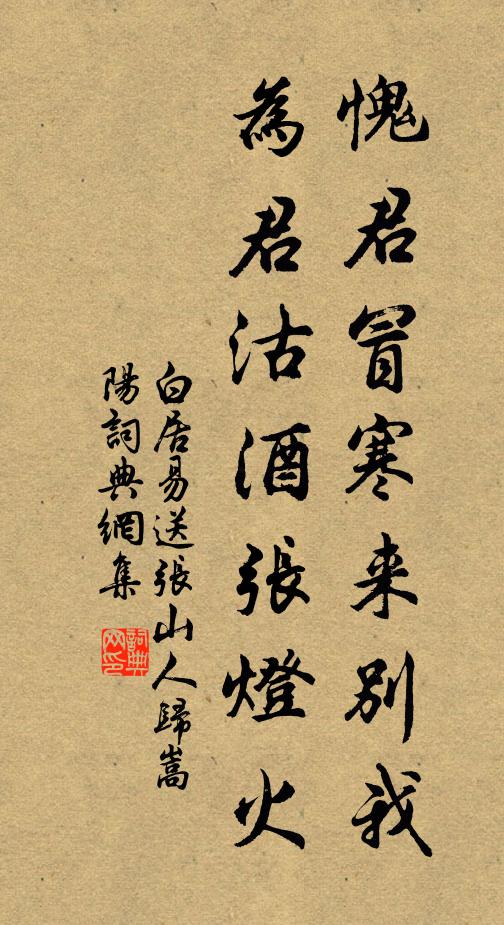 愧君冒寒来别我
為君沽酒張燈火
白居易送張山人歸嵩
陽詞典網集
詞典
网印